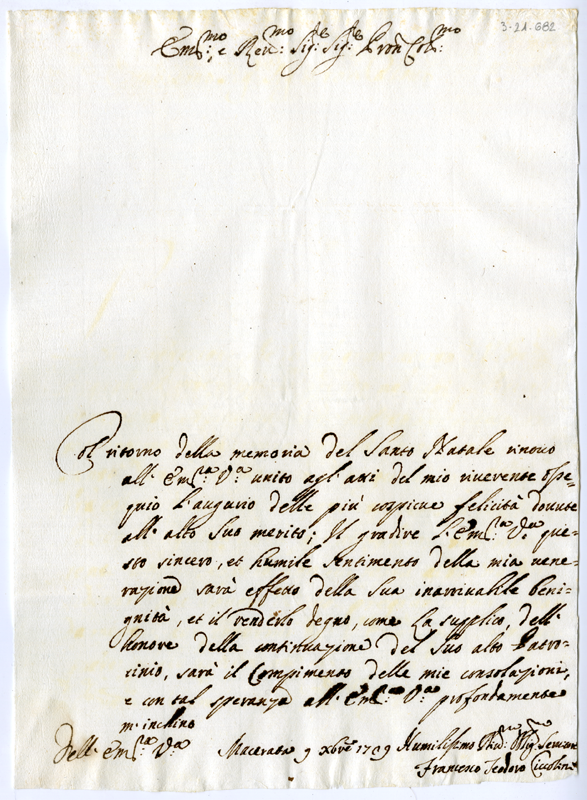 3-21-682
Em:mo, e Reu:mo Sig:re Sig:re Pron Col:mo
Col ritorno della memoria del Santo Natale rinouo
all' Em:za V:ra unito agl' atti del mio riuerente osse=
quio l'augurio delle più cospicue felicità douute
all' alto Suo merito; Il gradire l' Em:za V:ra que=
sto sincero, et humile sentimento della mia uene=
razione sarà effetto della Sua inarriuabile beni=
gnità, et il renderlo degno, come La supplico, dell'
honore della continuazione del Suo alto Patro=
cinio, sarà il Compimento delle mie consolazioni,
e con tal speranza all' Em:za V:ra profondamente
m' inchino
Dell' Em:za V:ra Macerata 9 Xbre 1709 Humilissimo
Francesco Teodoro Ciccolini